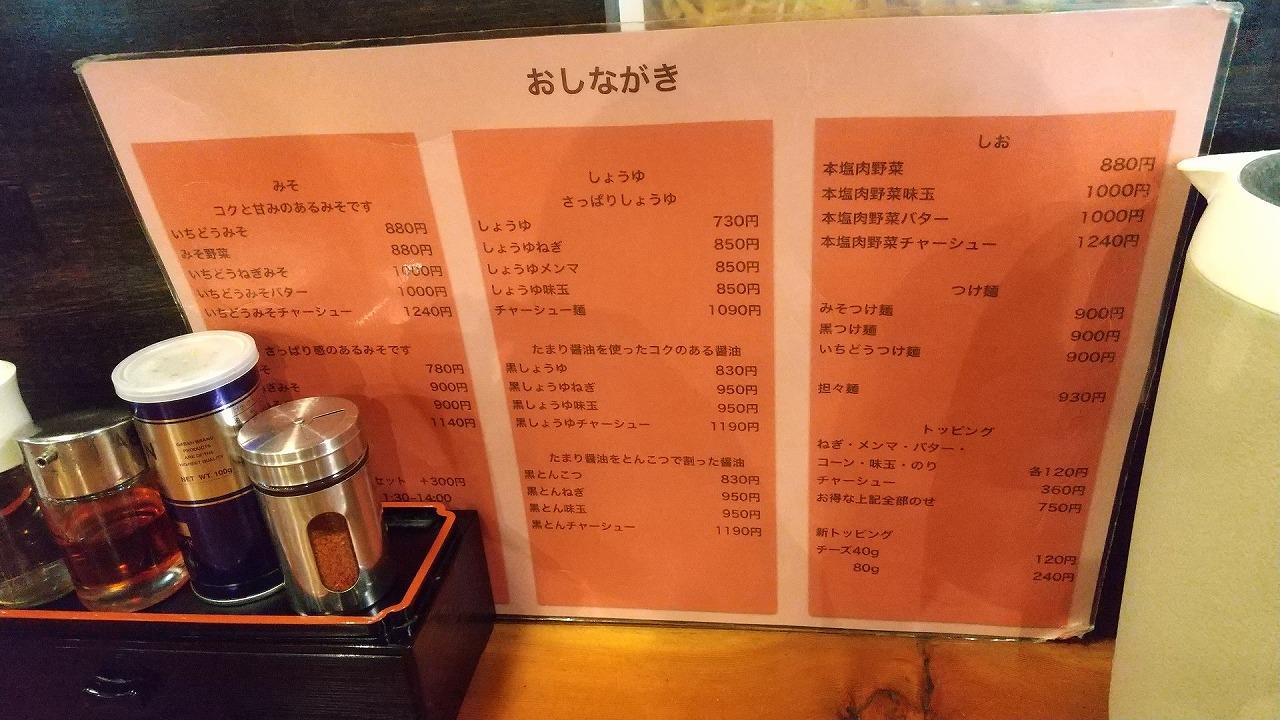 おしながき
みそ
コクと甘みのあるみそです
いちどうみそ 880円
みそ野菜 880円
いちどうねぎみそ 1000円
いちどうみそバター 1000円
いちどうみそチャーシュー 1240円
さっぱり感のあるみそです
そ 780円
ぎみそ 900円
900円
1140円
セット +300円
1:30–14:00
しょうゆ
さっぱりしょうゆ
しょうゆ 730円
しょうゆねぎ 850円
しょうゆメンマ 850円
しょうゆ味玉 850円
チャーシュー麺 1090円
たまり醤油を使ったコクのある醤油
黒しょうゆ 830円
黒しょうゆねぎ 950円
黒しょうゆ味玉 950円
黒しょうゆチャーシュー 1190円
たまり醤油をとんこつで割った醤油
黒とんこつ 830円
黒とんねぎ 950円
黒とん味玉 950円
黒とんチャーシュー 1190円
しお
本塩肉野菜 880円
本塩肉野菜味玉 1000円
本塩肉野菜バター 1000円
本塩肉野菜チャーシュー 1240円
つけ麺
みそつけ麺 900円
黒つけ麺 900円
いちどうつけ麺 900円
担々麺 930円
トッピング
ねぎ・メンマ・バター・
コーン・味玉・のり 各120円
チャーシュー 360円
お得な上記全部のせ 750円
新トッピング
チーズ40g 120円
80g 240円
GABAN BRAND
PRODUCTS
ARE OF THE
HIGHEST QUALITY
NET WT. 100g